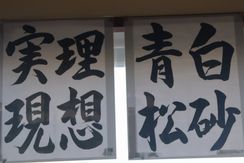 白砂
青松
理想
実現